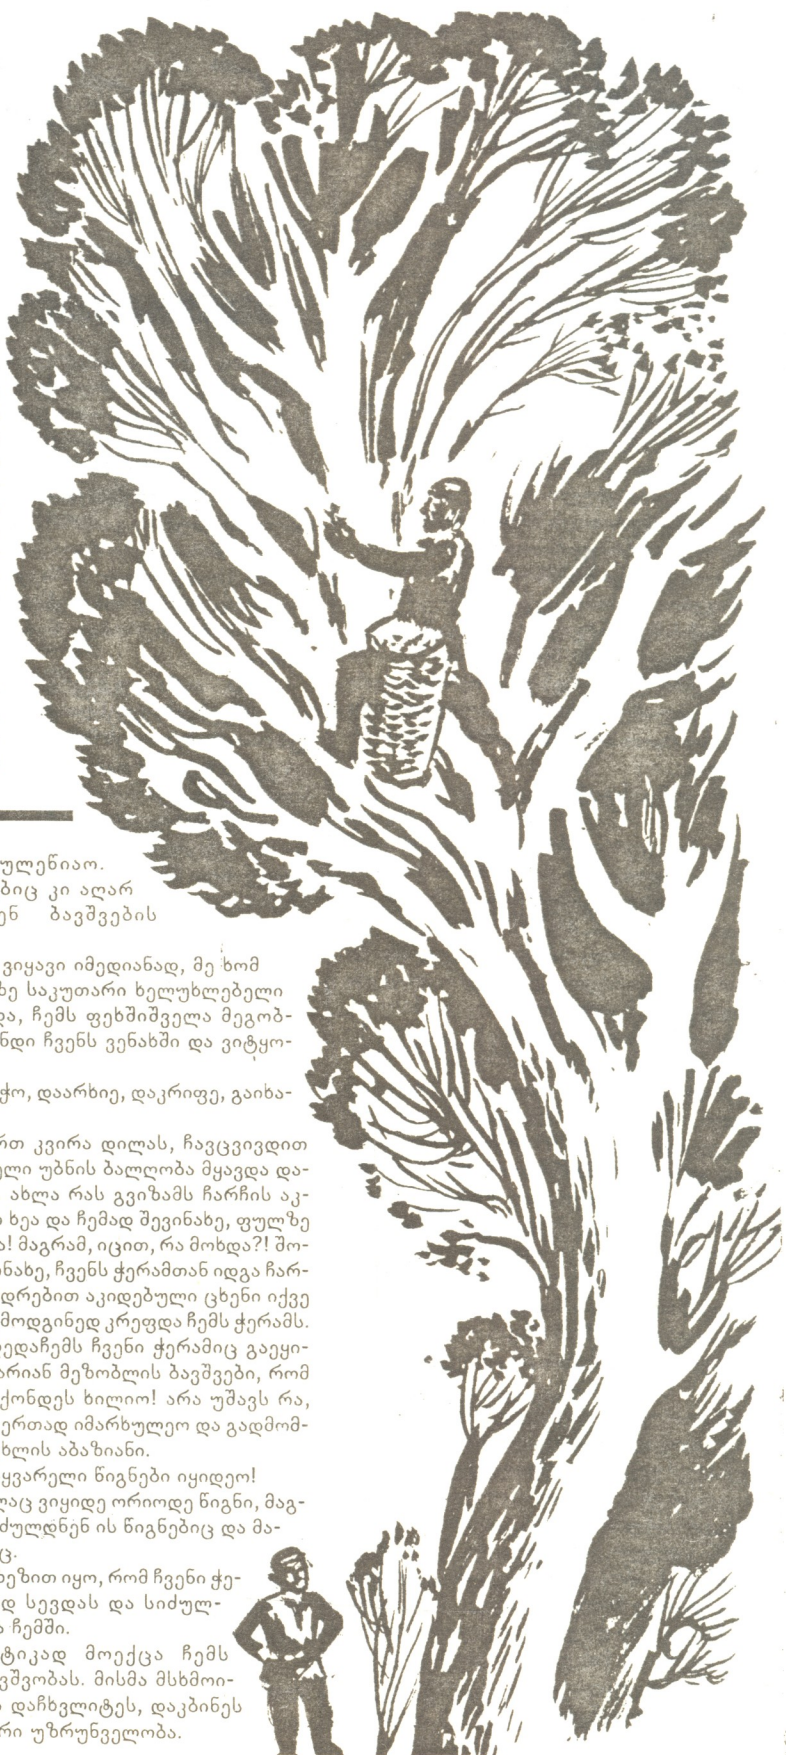 ულეწიაო.
ბიც კი აღარ
ენ ბავშვების
ვიყავი იმედიანად, მე ხომ
ხე საკუთარი ხელუხლებელი
და, ჩემს ფეხშიშველა მეგობ-
ნდი ჩვენს ვენახში და ვიტყო-
ჭო, დაარხიე, დაკრიფე, გაიხა-
რთ კვირა დილას, ჩავცვივდით
ელი უბნის ბალღობა მყავდა და-
ახლა რას გვიზამს ჩარჩის აკ-
ხეა და ჩემად შევინახე, ფულზე
ა! მაგრამ, იცით, რა მოხდა?! შო-
ინახე, ჩვენს ჭერამთან იდგა ჩარ-
დრებით აკიდებული ცხენი იქვე
მოდგინედ კრეფდა ჩემს ჭერამს.
ედაჩემს ჩვენი ჭერამიც გაეყი-
არიან მეზობლის ბავშვები, რომ
ქონდეს ხილიო! არა უშავს რა,
ერთად იმარხულეო და გადმომ-
ხლის აბაზიანი.
ყვარელი წიგნები იყიდეო!
ლაც ვიყიდე ორიოდე წიგნი, მაგ-
ძულდნენ ის წიგნებიც და მა-
ც.
ზეზით იყო, რომ ჩვენი ჭე-
დ სევდას და სიძულ-
ა ჩემში.
ტიკად მოექცა ჩემს
ვშვობას. მისმა მსხმოი-
დაჩხვლიტეს, დაკბინეს
რი უზრუნველობა.